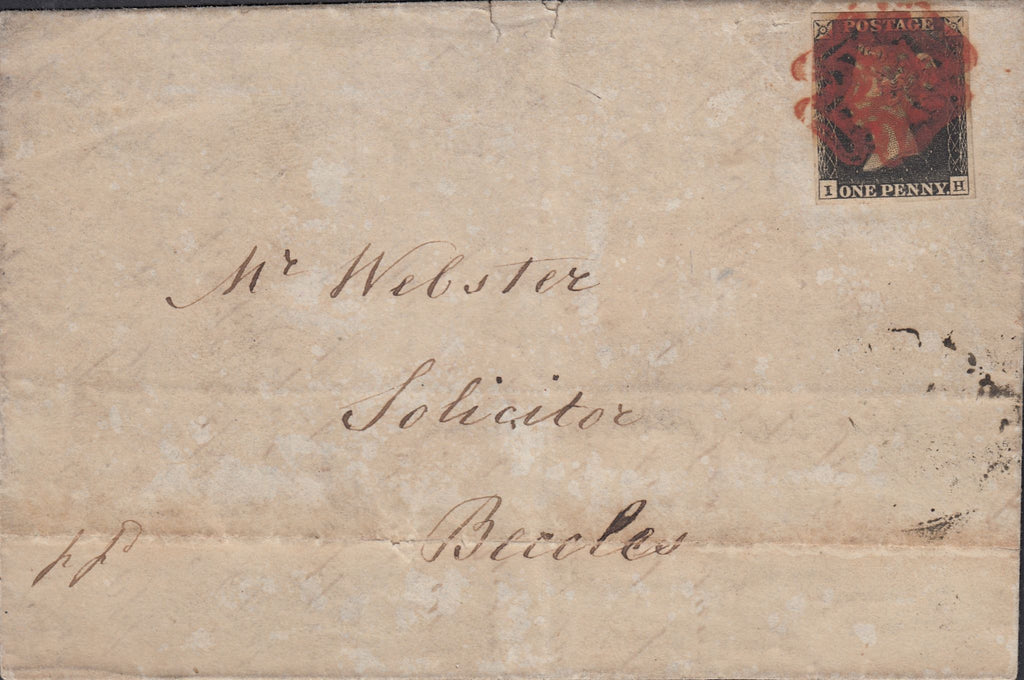 POSTAGE
I ONE PENNY. H
Mr Webster
Solicitor
Beccles
ppd